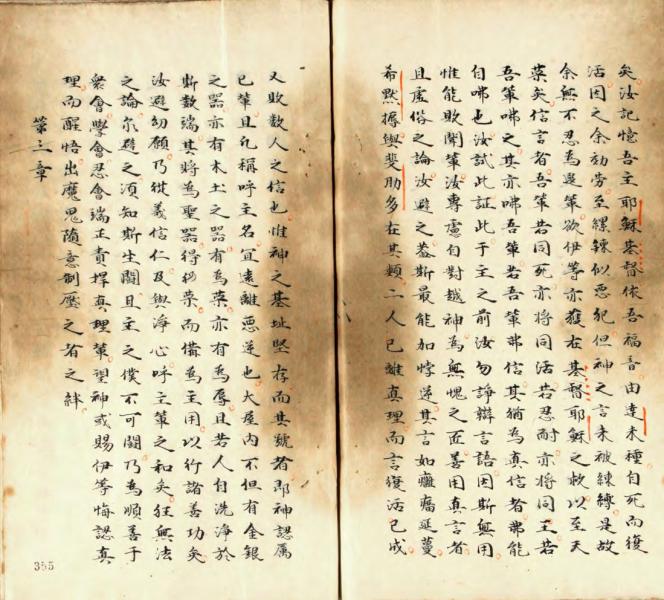 矣汝記憶吾主耶穌基督依吾福音由達未種自死而復
活因之余劾勞至縲絏似惡犯但神之言未被縲縛是故
余無不忍為選輩欲伊等亦獲在基督耶穌之救以至天
榮矣信言者吾輩若同死亦將同活若忍耐亦將同王若
吾輩咈之其亦咈吾輩若吾輩弗信其猶為真信者弗能
自咈也汝試此証此于主之前汝勿諍辯言語因斯無用
惟能敗聞輩汝專慮自對越神為無愧之匠善用真言者
且虛俗之論汝避之蓋斯最能加悖逆其言如癰疽延蔓
希默搙與斐肋多在其類二人已離真理而言復活已成
又敗數人之信也惟神之基址堅存而其號者即神認属
己輩且凢稱呼主名宜遠離悪逆也大屋內不但有金銀
之器亦有木土之器有為榮亦有為辱且若人自洗淨於
斯数端其將為聖器得祝榮而備為主用以行諸善功矣
汝避幼願乃從義信仁及與淨心呼主輩之和矣狂無法
之論尔避之須知斯生鬪且主之僕不可鬪乃為順善于
衆會學會忍會端正責捍真理輩望神或賜伊等悔認真
理而醒悟出魔鬼隨意制壓之者之絆
第三章
355